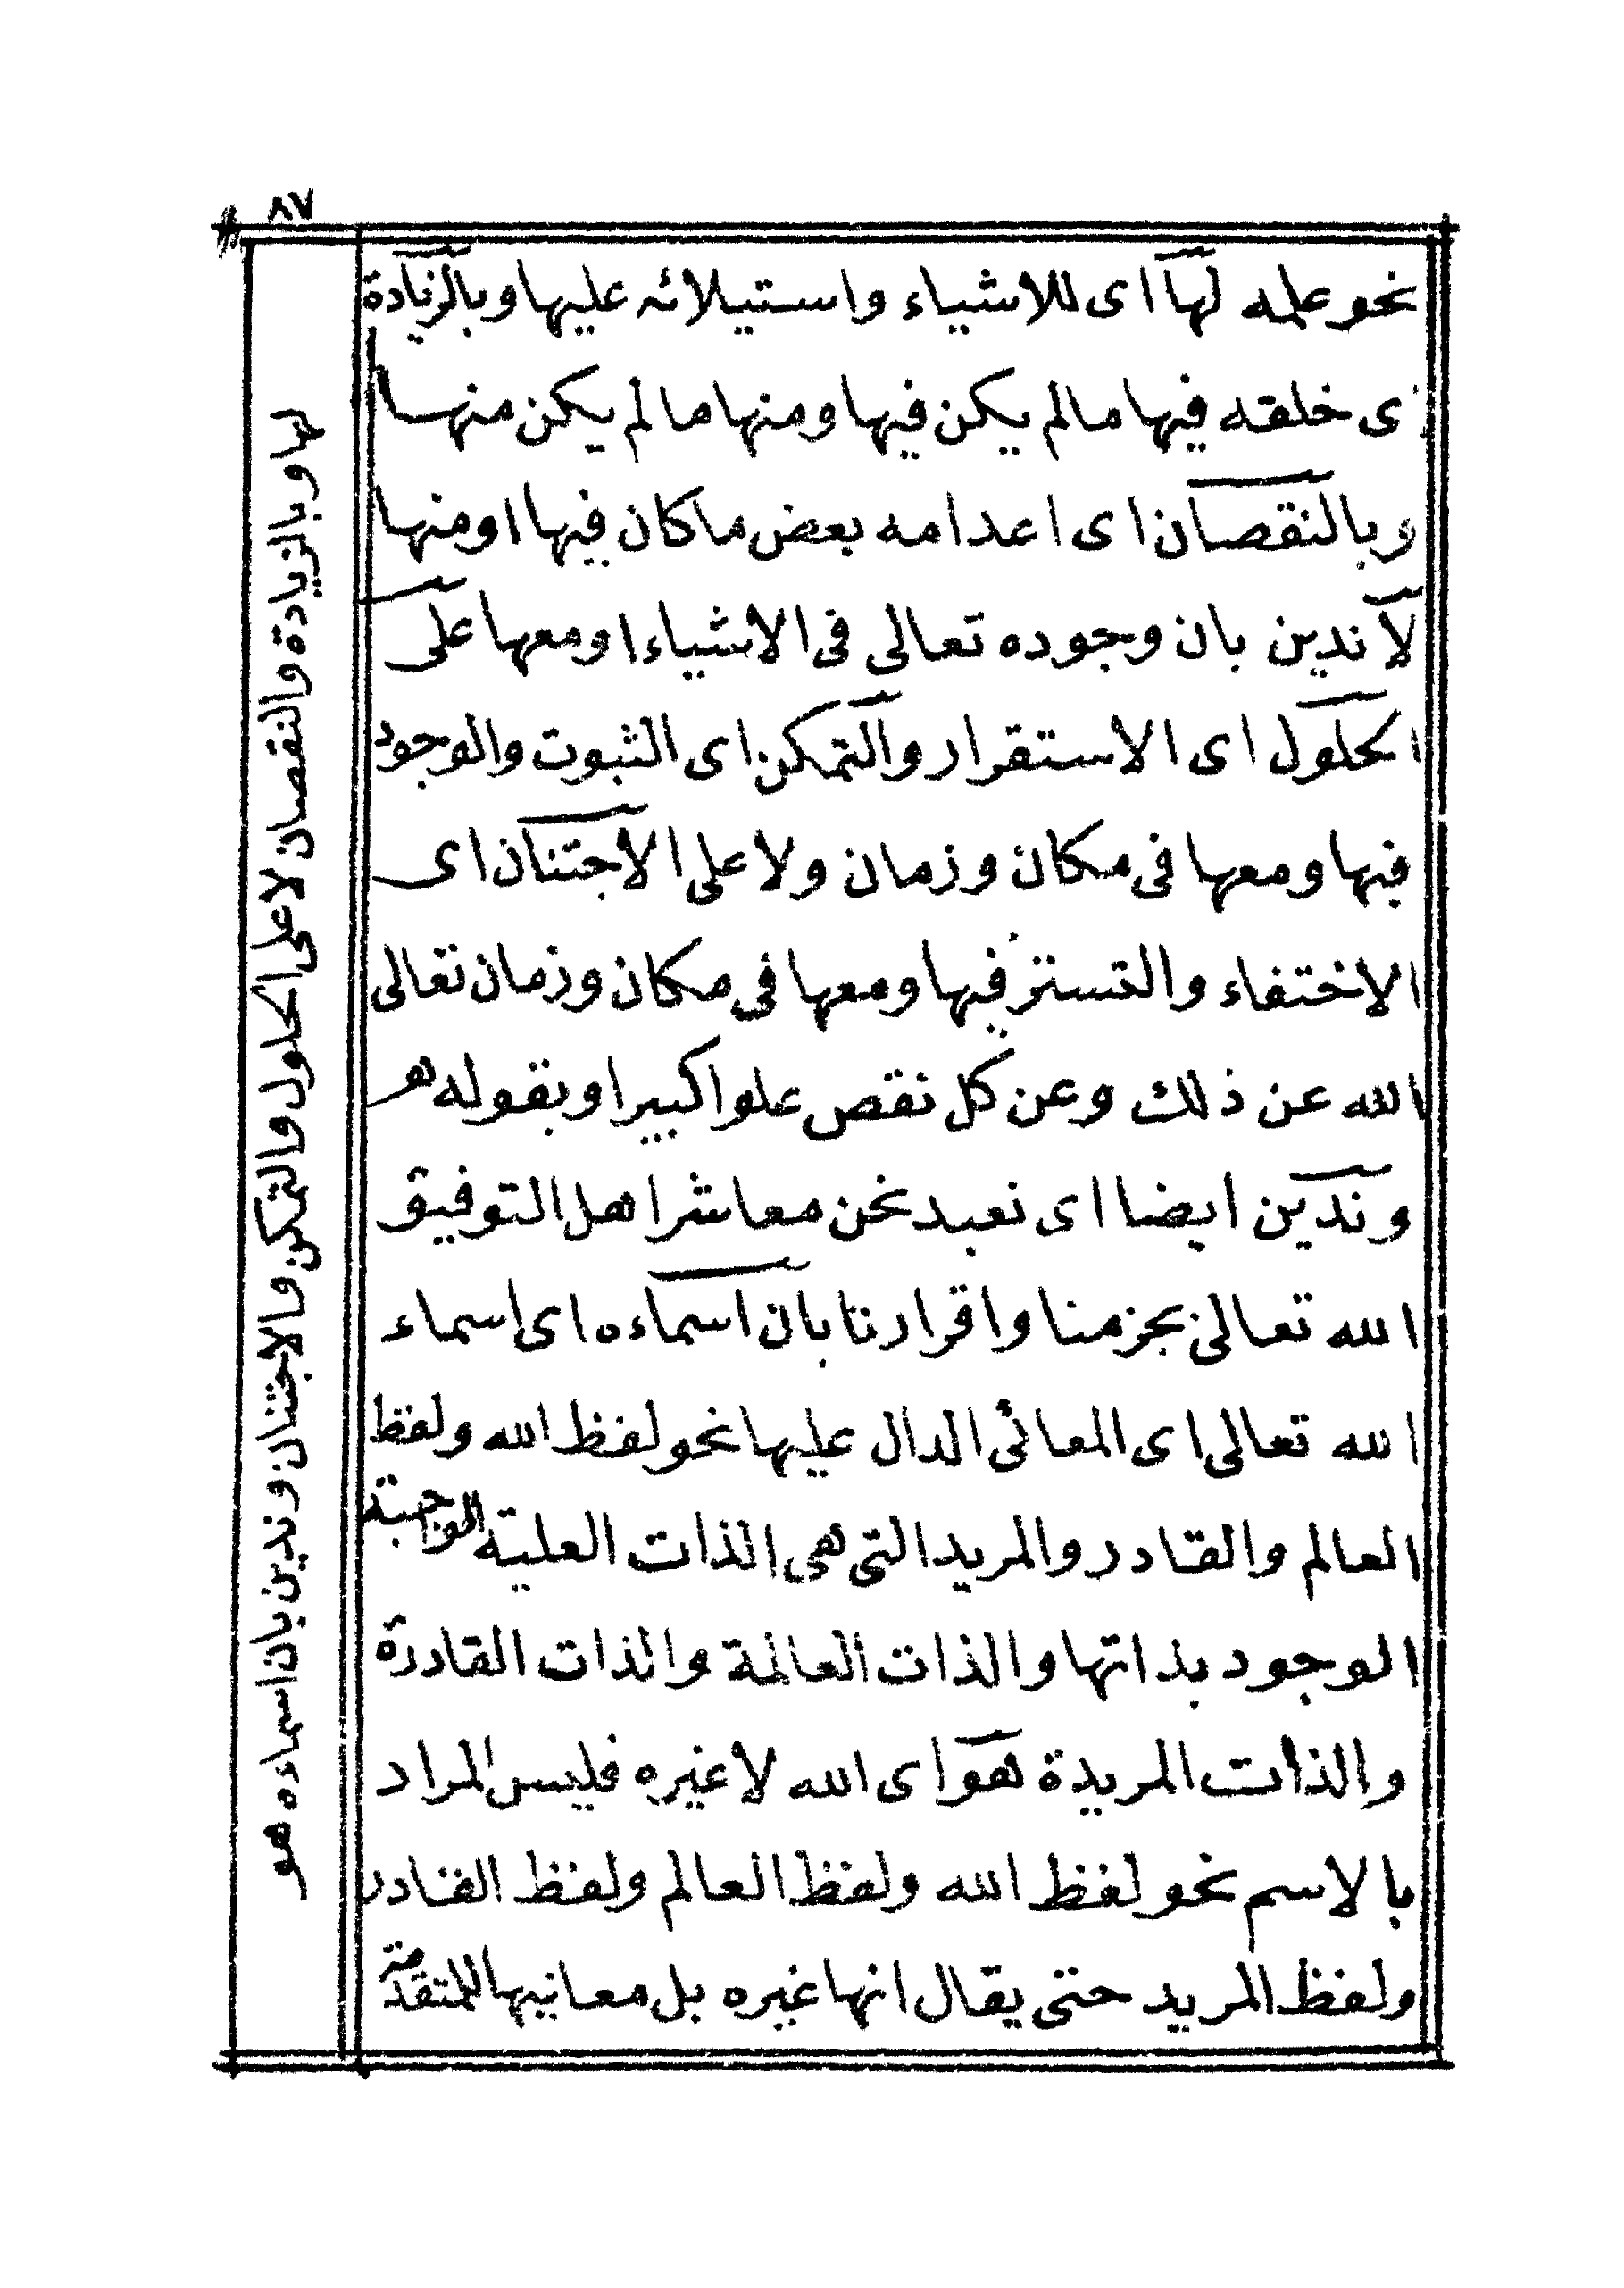 ٨٧
نحو علمه لها اى للاشياء واستيلائه عليها وبالزيادة
اى خلقه فيها مالم يكن فيها ومنها مالم يكن منها
وبالنقصان اى اعدامه بعض ماكان فيها اومنها
لا ندين بان وجوده تعالى فى الاشياء اومعها على
الحلول اى الاستقرار والتمكن اى الثبوت والوجود
فيها ومعها فى مكان وزمان ولا على الاجتنان اى
الاختفاء والتستر فيها ومعها فى مكان وزمان تعالى
الله عن ذلك وعن كل نقص علوا كبيرا وبقوله هو
وندين ايضا اى نعبد نحن معاشر اهل التوفيق
الله تعالى بجزمنا واقرارنا بان اسماءه اى اسماء
الله تعالى اى المعانى الدال عليها نحو لفظ الله ولفظ
العالم والقادر والمريد التى هى الذات العلية الواجبة
الوجود بذاتها والذات العالمة والذات القادرة
والذات المريدة هو اى الله لا غيره فليس المراد
بالاسم نحو لفظ الله ولفظ العالم ولفظ القادر
ولفظ المريد حتى يقال انها غيره بل معانيها المتقدمة
لها وبالزيادة والنقصان لا على الحلول والتمكن والاجتنان وندين بان اسماءه هو